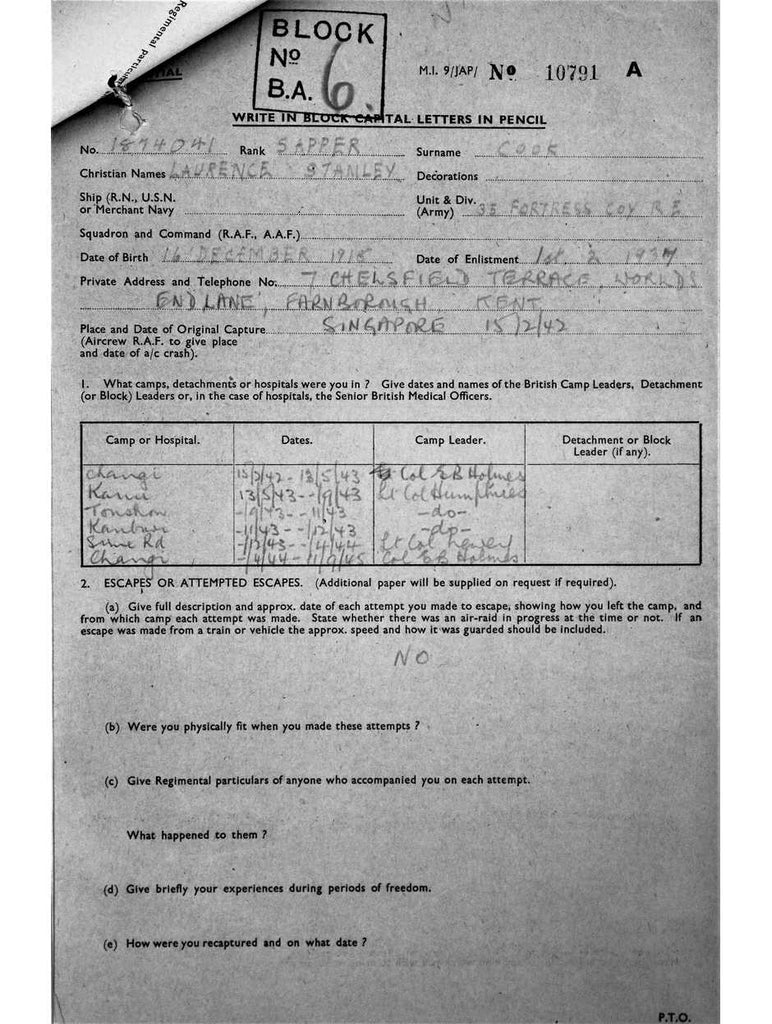 Regimental particu
IAL
BLOCK
No
B.A. 6.
M.I. 9/JAP/ No 10791 A
WRITE IN BLOCK CAPITAL LETTERS IN PENCIL
No. 1874041 Rank SAPPER Surname COOK
Christian Names LAURENCE STANLEY Decorations
Ship (R.N., U.S.N. or Merchant Navy
Unit & Div. (Army) 35 FORTRESS COY R E
Squadron and Command (R.A.F., A.A.F.)
Date of Birth 16 DECEMBER 1918 Date of Enlistment 1st. 2 1937
Private Address and Telephone No. 7 CHELSFIELD TERRACE, WORLDS
END LANE, FARNBOROUGH KENT
Place and Date of Original Capture SINGAPORE 15/2/42
(Aircrew R.A.F. to give place
and date of a/c crash).
1. What camps, detachments or hospitals were you in ? Give dates and names of the British Camp Leaders, Detachment
(or Block) Leaders or, in the case of hospitals, the Senior British Medical Officers.
Camp or Hospital. Dates. Camp Leader. Detachment or Block
Leader (if any).
Changi 15/2/42 - 13/5/43 Lt Col E B Holmes
Kanu 13/5/43 - -/9/43 Lt Col Humphries
Tonshow -/9/43 - -/11/43 -do-
Kanburi -/11/43 - -/12/43 -do-
Sime Rd -/12/43 - -/4/44 Lt Col
Changi -/4/44 - 11/9/45 Col E B Holmes
2. ESCAPES OR ATTEMPTED ESCAPES. (Additional paper will be supplied on request if required).
(a) Give full description and approx. date of each attempt you made to escape, showing how you left the camp, and
from which camp each attempt was made. State whether there was an air-raid in progress at the time or not. If an
escape was made from a train or vehicle the approx. speed and how it was guarded should be included.
NO
(b) Were you physically fit when you made these attempts ?
(c) Give Regimental particulars of anyone who accompanied you on each attempt.
What happened to them ?
(d) Give briefly your experiences during periods of freedom.
(e) How were you recaptured and on what date ?
P.T.O.